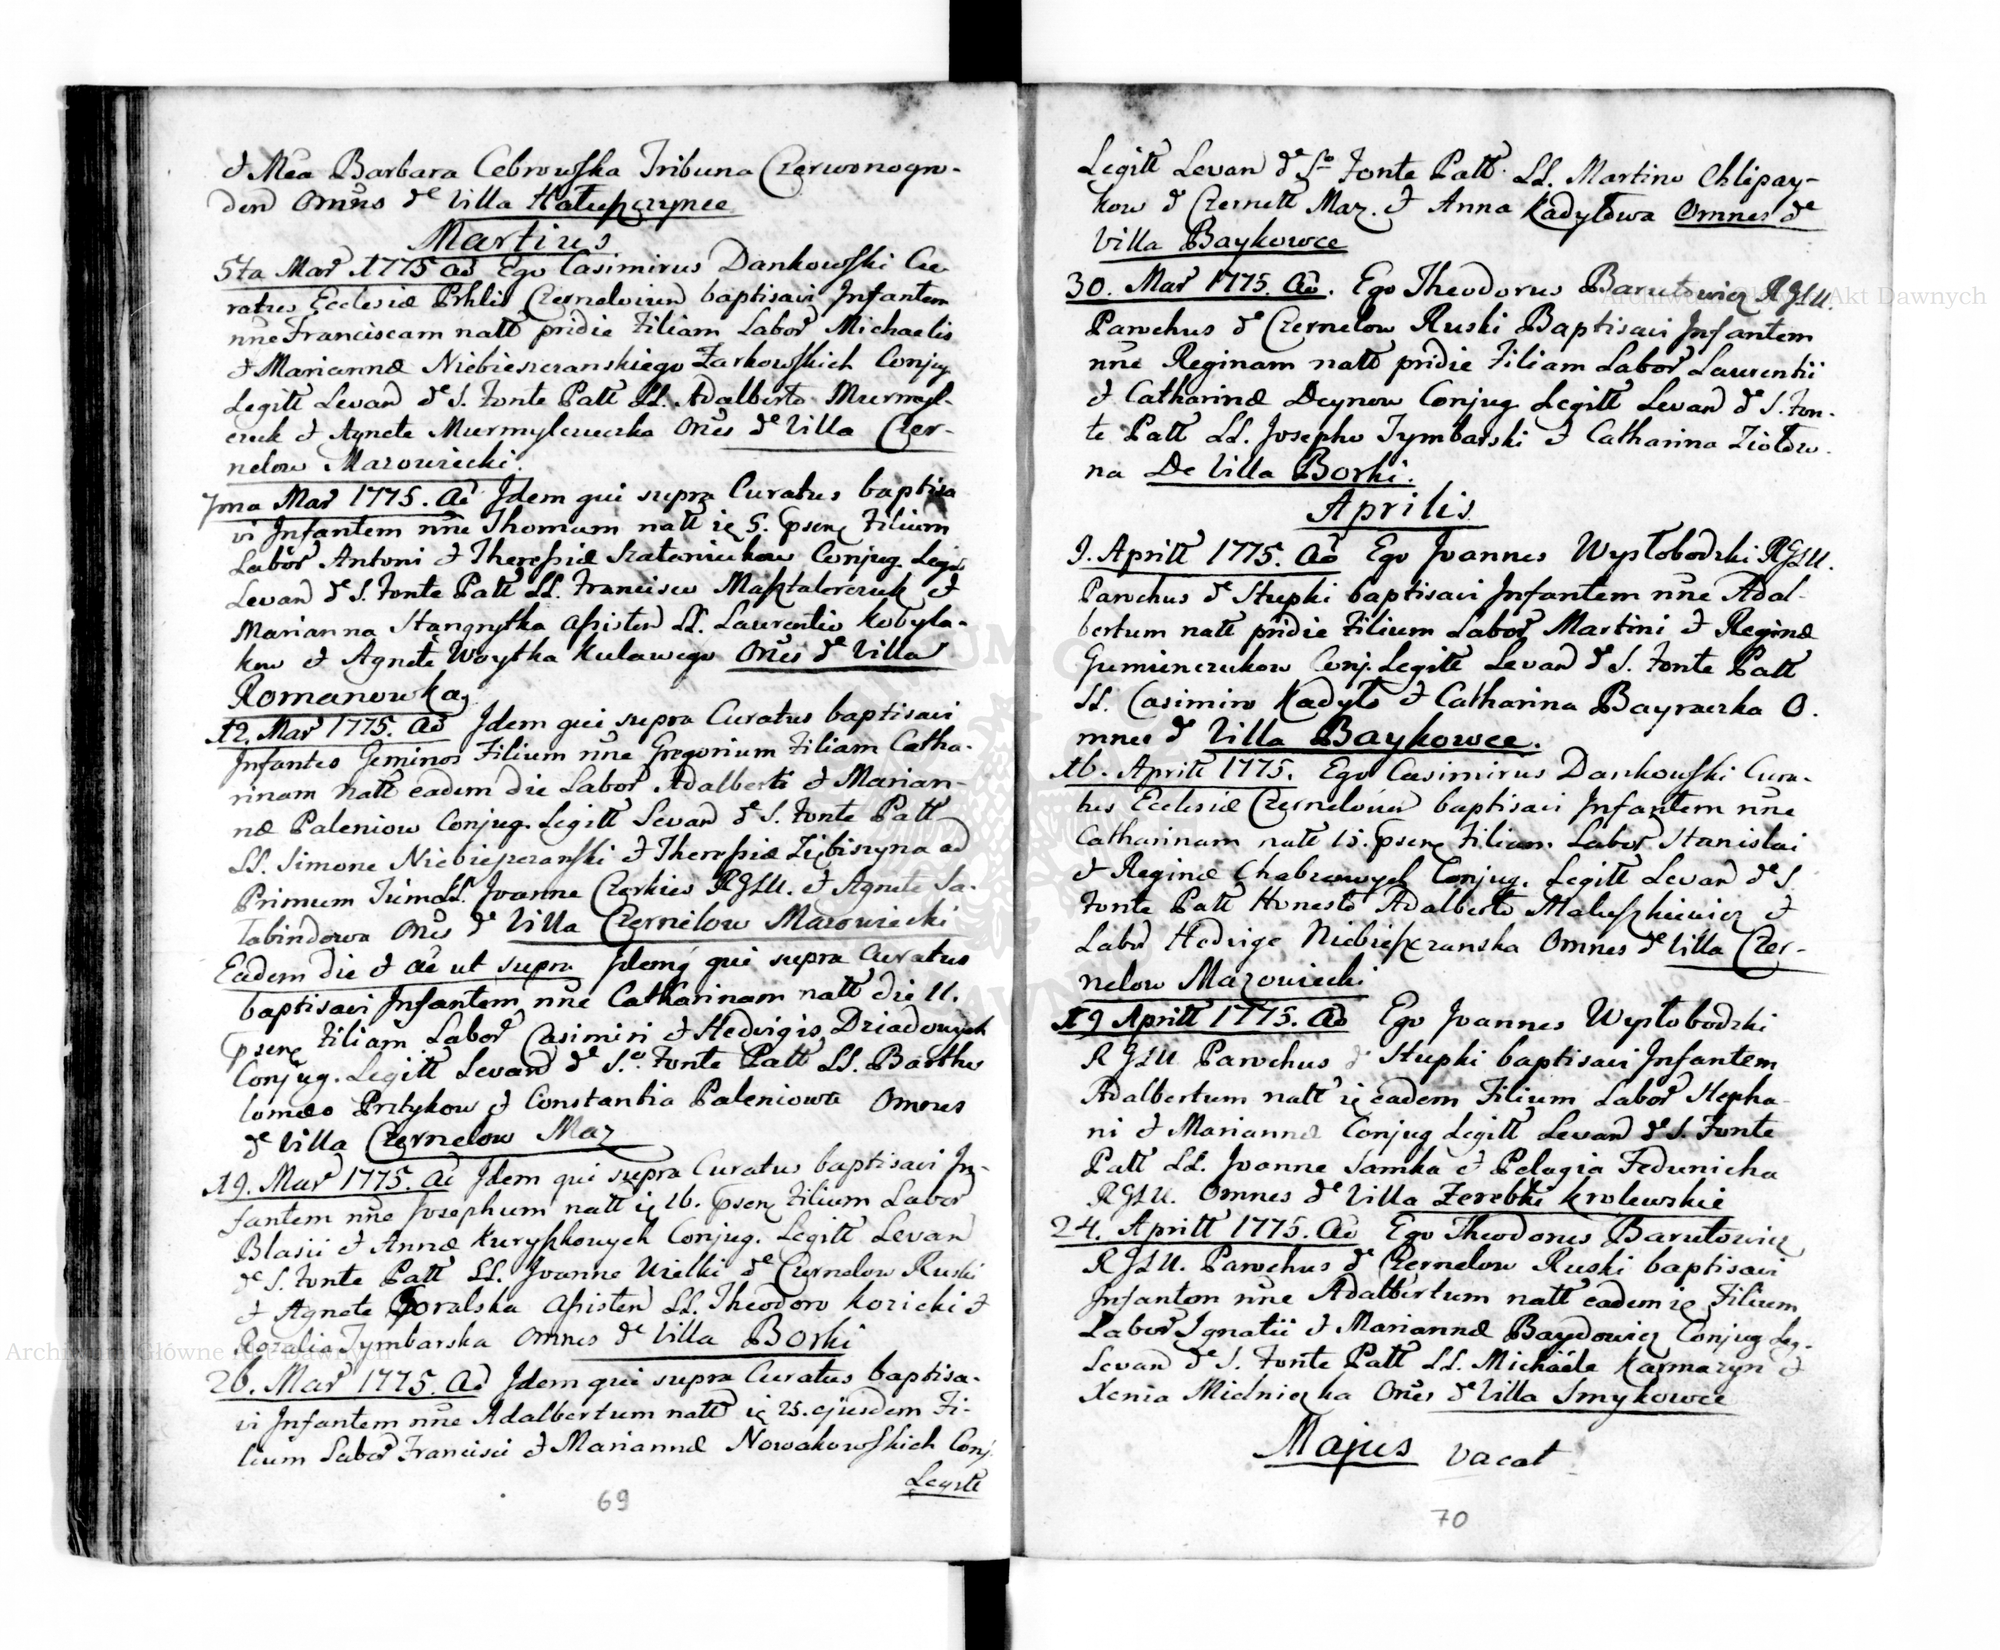 & Mea Barbara Cebrowska Tribuna Czerwonogro-
den Omnes de Villa Hałuszczynce
Martius
5ta Mar 1775 Ao Ego Casimirus Dankowski Cu-
ratus Ecclesiæ Prhlis Czernelovien baptisavi Infantem
nne Franciscam natt pridie Filiam Labor Michaelis
& Mariannæ Niebieszczanskiego Żarkowskich Conjug
Legitt Levan de S. Fonte Patt LL. Adalberto Murmyl-
czuk & Agnete Murmylczuczka Ones de Villa Czer-
nelow Mazowiecki.
7ma Mar 1775. Ao Idem qui supra Curatus baptisa
vi Infantem nne Thomam natt 5. Filium
Labor Antoni & Theressiæ Szataniukow Conjug. Legit
Levan de S. Fonte Patt LL. Francisco Masztalerczuk et
Marianna Stangrytka Assisten LL. Laurentio Kobyla-
kow & Agnete Woytka Kulawego Ones de Villa
Romanowka
12. Mar 1775. Ao Idem qui supra Curatus baptisavi
Infantes Geminos Filium nne Gregorium Filiam Catha-
rinam natt eadem die Labor Adalberti & Marian-
næ Paleniow Conjug. Legitt Levan de S. Fonte Patt
LL. Simone Niebieszczanski & Theressia Ziębiszyna ad
Primum LL. Joanne Czerkies RGLU. & Agnete Sa-
Tabindowa Ones de Villa Czernelow Mazowiecki
Eadem die & Ao ut supra Idemq qui supra Curatus
baptisavi Infantem nne Catharinam natt die 11.
psen Filiam Labor Casimiri & Hedvigis Dziadowych
Conjug. Legitt Levan de So. Fonte Patt LL. Bartho
lomæo Prytykow & Constantia Paleniowa Omnes
de Villa Czernelow Maz
19. Mar 1775. Ao Idem qui supra Curatus baptisavi In-
fantem nne Josephum natt 16. psen Filium Labor
Blasii & Annæ Kuryszkowych Conjug. Legitt Levan
de S. Fonte Patt LL. Joanne Wielki de Czernelow Ruski
& Agnete Goralska Assisten LL. Theodoro Kozicki &
Rozalia Tymbarska Omnes de Villa Borki
26. Mar 1775. Ao Idem qui supra Curatus baptisa-
vi Infantem nne Adalbertum natt 25. ejusdem Fi-
lium Labor Francisci & Mariannæ Nowakowskich Conj.
Legitt
69
Legitt Levan de So Fonte Patt. LL. Martino Chlipay-
kow de Czernell Maz. & Anna Kadyłowa Omnes de
Villa Baykowce
30. Mar 1775. Ao. Ego Theodorus Barutowicz RGLU.
Parochus de Czernelow Ruski Baptisavi Infantem
nne Reginam natt pridie Filiam Labor Laurentii
& Catharinæ Deynow Conjug Legitt Levan de S. Fon-
te Patt LL. Josepho Tymbarski & Catharina Ziołow-
na De Villa Borki.
Aprilis
9. Aprill 1775. Ao Ego Joannes Wysłobodzki RGLU.
Parochus de Stupki baptisavi Infantem nne Adal-
bertum natt pridie Filium Labor Martini & Reginæ
Gumienczukow Conj. Legitt Levan de S. Fonte Patt
LL. Casimiro Kadyło & Catharina Bayraczka O.
mnes de Villa Baykowce.
16. Aprill 1775. Ego Casimirus Dankowski Cura-
tus Ecclesiæ Czernelovien baptisavi Infantem nne
Catharinam natt 15. psen Filiam Labor Stanislai
& Reginæ Chabrowych Conjug. Legitt Levan de S.
Fonte Patt Honesto Adalberto Maluszkiewicz &
Labor Hedvige Niebieszczanska Omnes de Villa Czer-
nelow Mazowiecki
19 Aprill 1775. Ao Ego Joannes Wysłobodzki
RGLU Parochus de Stupki baptisavi Infantem
Adalbertum natt eadem Filium Labor Stepha-
ni & Mariannæ Conjug Legitt Levan de S. Fonte
Patt LL. Joanne Samka & Pelagia Fedunicha
RGLU. Omnes de Villa Zerebki Krolewskie
24. Aprill 1775. Ao Ego Theodorus Barutowicz
RGLU. Parochus de Czernelow Ruski baptisavi
Infantem nne Adalbertum natt eadem Filium
Labor Ignatii & Mariannæ Baydowicz Conjug Leg.
Levan de S. Fonte Patt LL. Michaele Karmazyn &
Xenia Mielniczka Ones de Villa Smykowce
Majus vacat
70
Archiwum Główne Akt Dawnych
Archiwum Główne Akt Dawnych